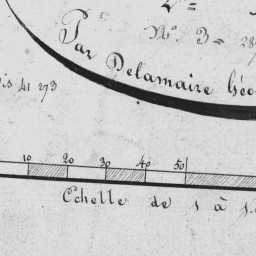 N° 3 =
Par Delamaire Géo
is 41 273
10 20 30 40 50
Echelle de 1 à 5.